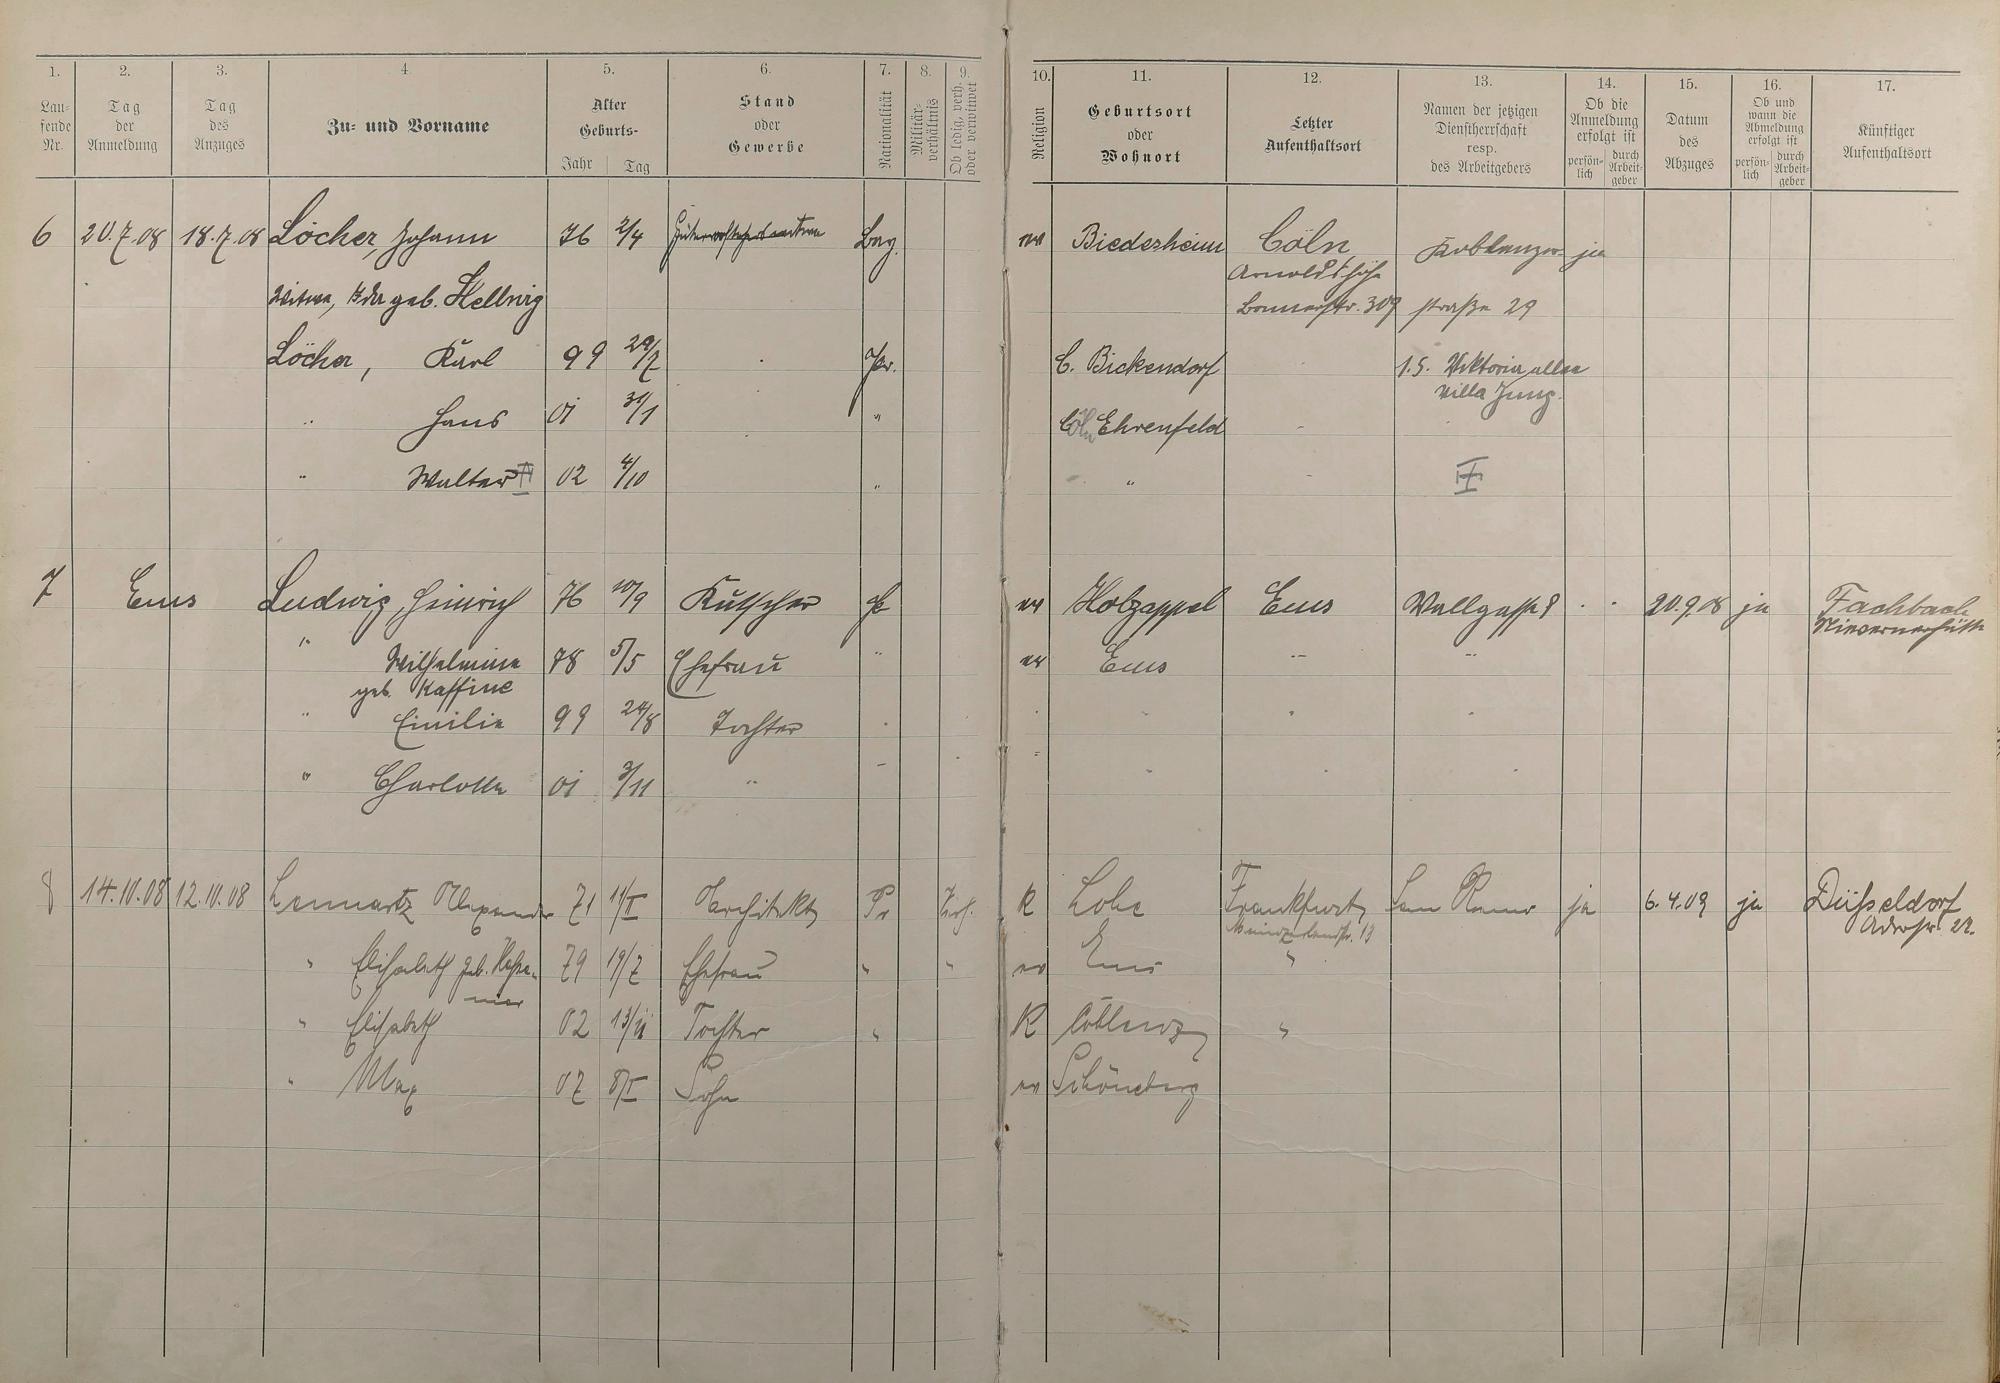 1. 2. 3. 4. 5. 6. 7. 8. 9. 10. 11. 12. 13. 14. 15. 16. 17.
Lau-
fende
Nr.
Tag
der
Anmeldung
Tag
des
Anzuges
Zu- und Vorname
Alter
Geburts-
Jahr Tag
Stand
oder
Gewerbe
Nationalität
Militär-
verhältnis
Ob ledig, verh.
oder verwitwet
Religion
Geburtsort
oder
Wohnort
Letzter
Aufenthaltsort
Namen der jetzigen
Dienstherrschaft
resp.
des Arbeitgebers
Ob die
Anmeldung
erfolgt ist
persön-
lich
durch
Arbeit-
geber
Datum
des
Abzuges
Ob und
wann die
Abmeldung
erfolgt ist
persön-
lich
durch
Arbeit-
geber
Künftiger
Aufenthaltsort
6 20.7.08 18.7.08 Löcher, Johann 76 2/4 Bay. ev Biedesheim Cöln Koblenzer- ja
Arnoldshöhe
Witwe, geb. Hellwig Bonnerstr. 309 straße 29
Löcher, Karl 99 29/7 Pr. C. Bickendorf 1.5. Viktoriaallee
Villa Jung.
" Hans 01 31/1 " Cöln Ehrenfeld
" Walter 02 4/10 " "
7 Ems Ludwig, Heinrich 76 10/9 Kutscher P ev Holzappel Ems Wallgasse 8 20.9.08 ja Fachbach
Nievernerhütte
" Wilhelmine 78 5/5 Ehefrau " ev Ems
geb. Kaffine
" Emilie 99 24/8 Tochter
" Charlotte 01 3/11 "
8 14.10.08 12.10.08 Lennartz Alexander 71 11/II Architekt Pr Verh. K Lohe Frankfurt San Remo ja 6.4.09 ja Düsseldorf
Mainzerlandstr. 13 Adersstr. 22.
" Elisabeth geb. 79 19/7 Ehefrau " " ev Ems "
" Elisabeth 02 13/11 Tochter " K Coblenz "
" Max 07 8/I Sohn ev Schöneberg